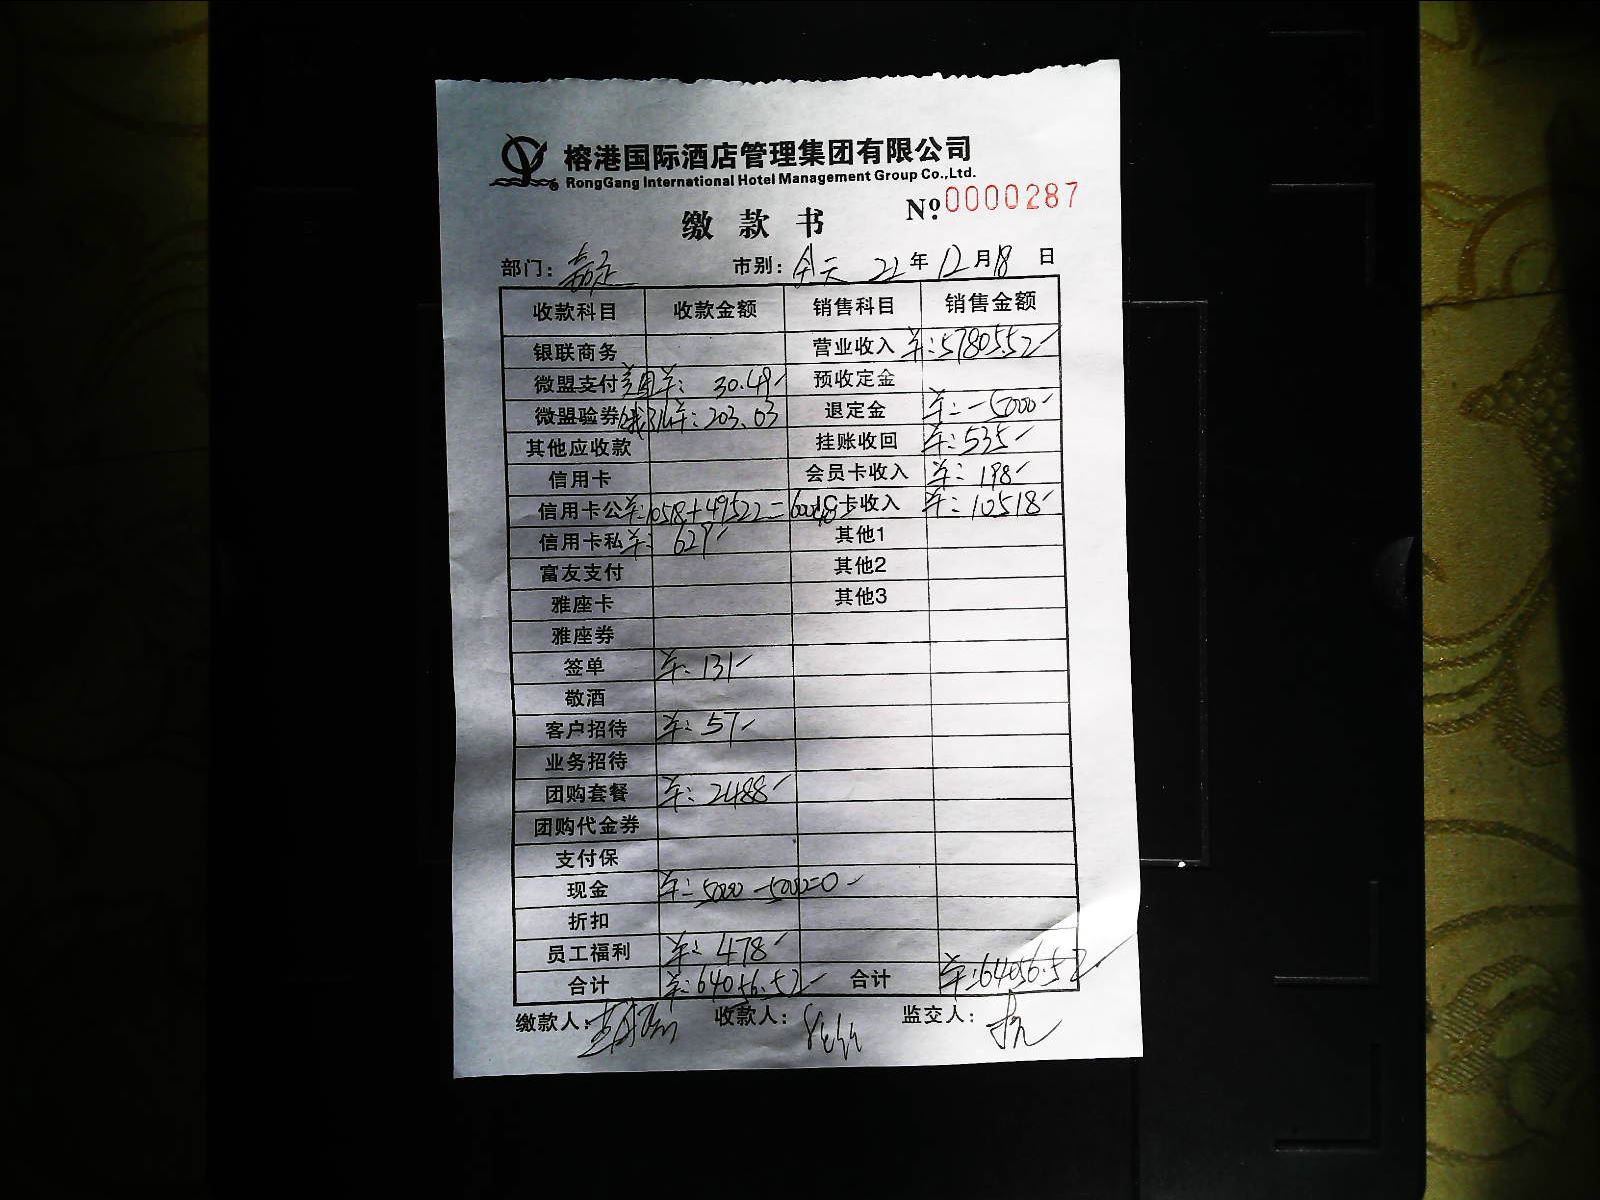 榕港国际酒店管理集团有限公司
RongGang International Hotel Management Group Co.,Ltd.
缴款书 №0000287
部门: 嘉定 市别: 全天 22年12月18日
收款科目 收款金额 销售科目 销售金额
银联商务 营业收入 ¥:57805.52
微盟支付 美团 ¥: 30.49 预收定金
微盟验券 ¥: 203.03 退定金 ¥: -5000
其他应收款 挂账收回 ¥: 535
信用卡 会员卡收入 ¥: 198
信用卡公 ¥:10518+49522= IC卡收入 ¥: 10518
信用卡私 ¥: 629 其他1
富友支付 其他2
雅座卡 其他3
雅座券
签单 ¥: 131
敬酒
客户招待 ¥: 57
业务招待
团购套餐 ¥: 2488
团购代金券
支付保
现金 ¥: 5000-5000=0
折扣
员工福利 ¥: 478
合计 ¥:64056.52 合计 ¥:64056.52
缴款人: 收款人: 监交人: